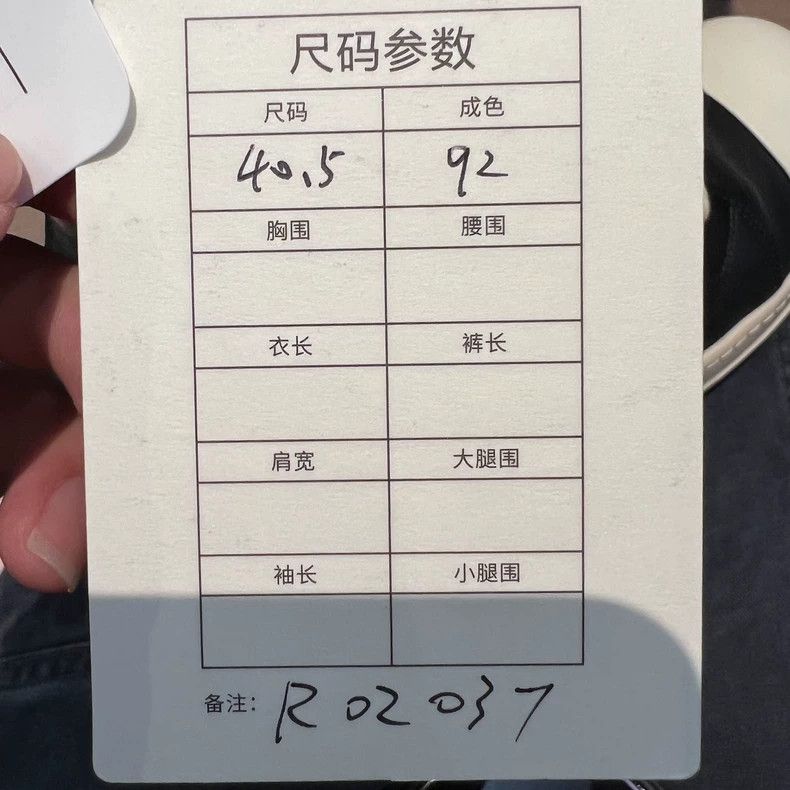 尺码参数
尺码 成色
40.5 92
胸围 腰围
衣长 裤长
肩宽 大腿围
袖长 小腿围
备注: R02037